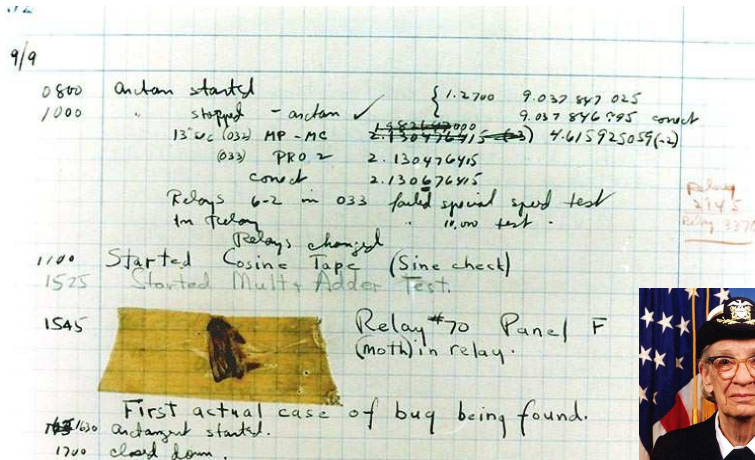 9/9
0800 Antan started { 1.2700 9.037 847 025
1000 " stopped - antan ✓ 9.037 846 995 correct
13"uc (032) MP - MC 2.130476415 (-3) 4.615925059(-2)
(033) PRO 2 2.130476415
correct 2.130676415
Relays 6-2 in 033 failed special speed test
In Relay " 10.000 test.
Relay
Relay 3370
Relays changed
1100 Started Cosine Tape (Sine check)
1525 Started Mult + Adder Test.
1545 Relay #70 Panel F
(moth) in relay.
First actual case of bug being found.
1630 antangent started.
1700 closed down.